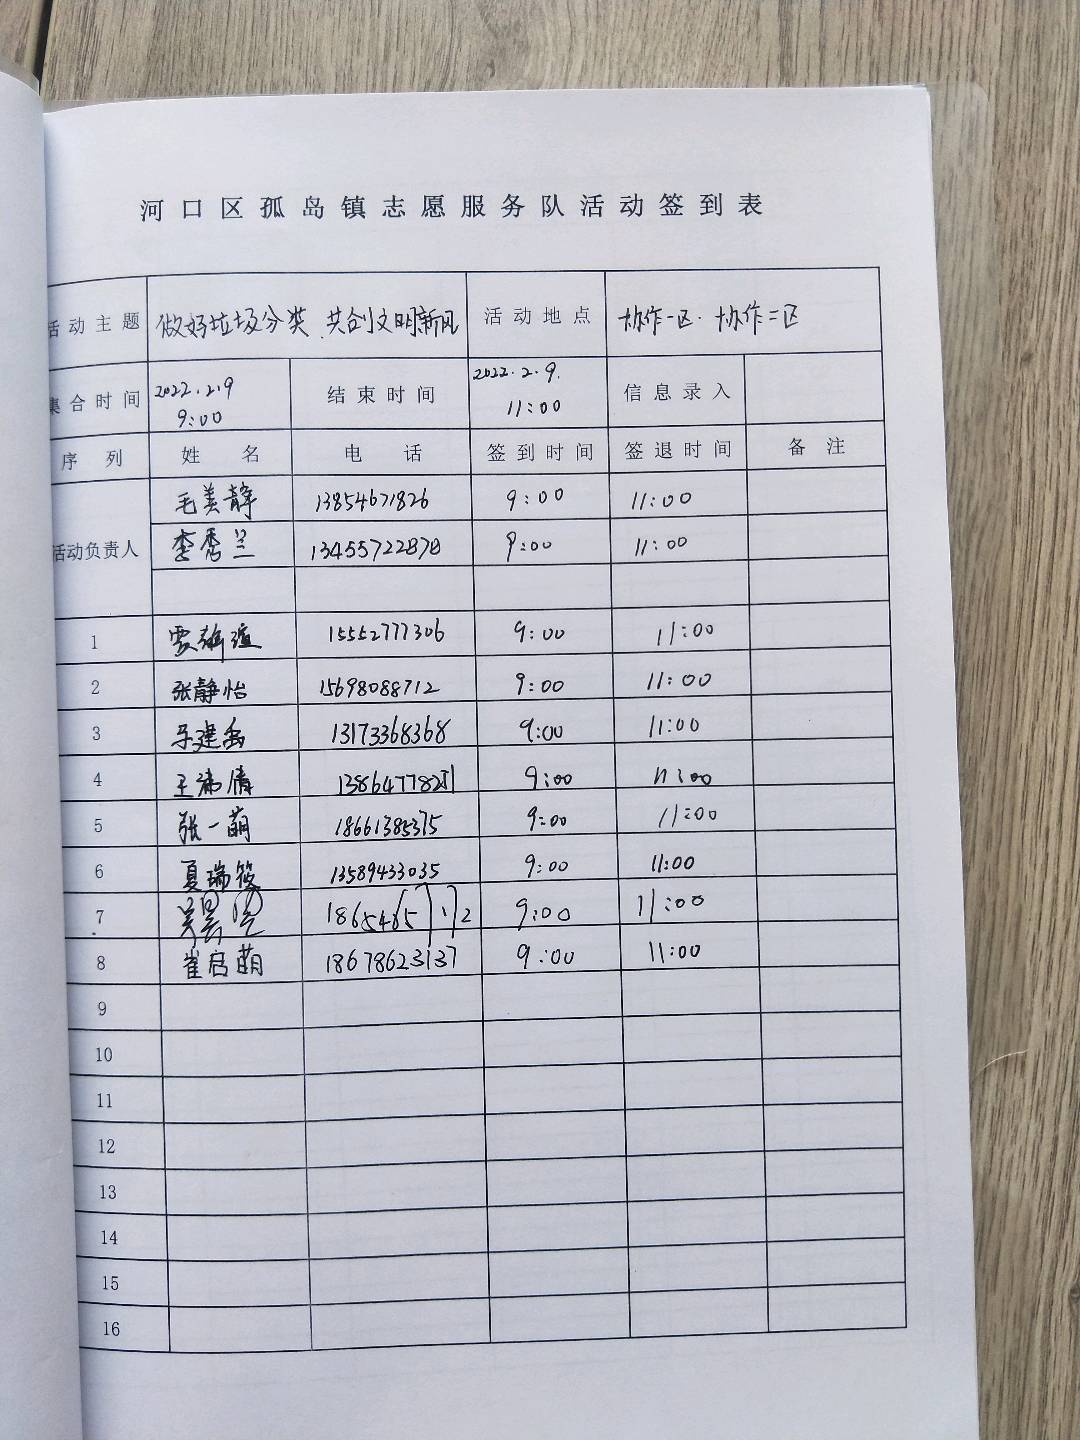 河口区孤岛镇志愿服务队活动签到表
活动主题 做好垃圾分类 共创文明新风 活动地点 协作一区·协作二区
集合时间 2022.2.9 9:00 结束时间 2022.2.9. 11:00 信息录入
序列 姓名 电话 签到时间 签退时间 备注
活动负责人
毛美静 13854671826 9:00 11:00
李秀兰 13455722878 9:00 11:00
1 15552777306 9:00 11:00
2 张静怡 15698088712 9:00 11:00
3 13173368368 9:00 11:00
4 9:00 11:00
5 张一萌 18661385375 9:00 11:00
6 夏瑞筱 13589433035 9:00 11:00
7 9:00 11:00
8 崔启萌 18678623137 9:00 11:00
9
10
11
12
13
14
15
16